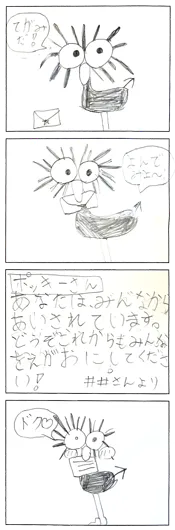 てがみ
だ!!
よんで
みよ〜
ポッキーさん
あなたは、みんなから
あいされています。
どうぞこれからもみんな
をえがおにしてくださ
い! ##さんより
ドク♡